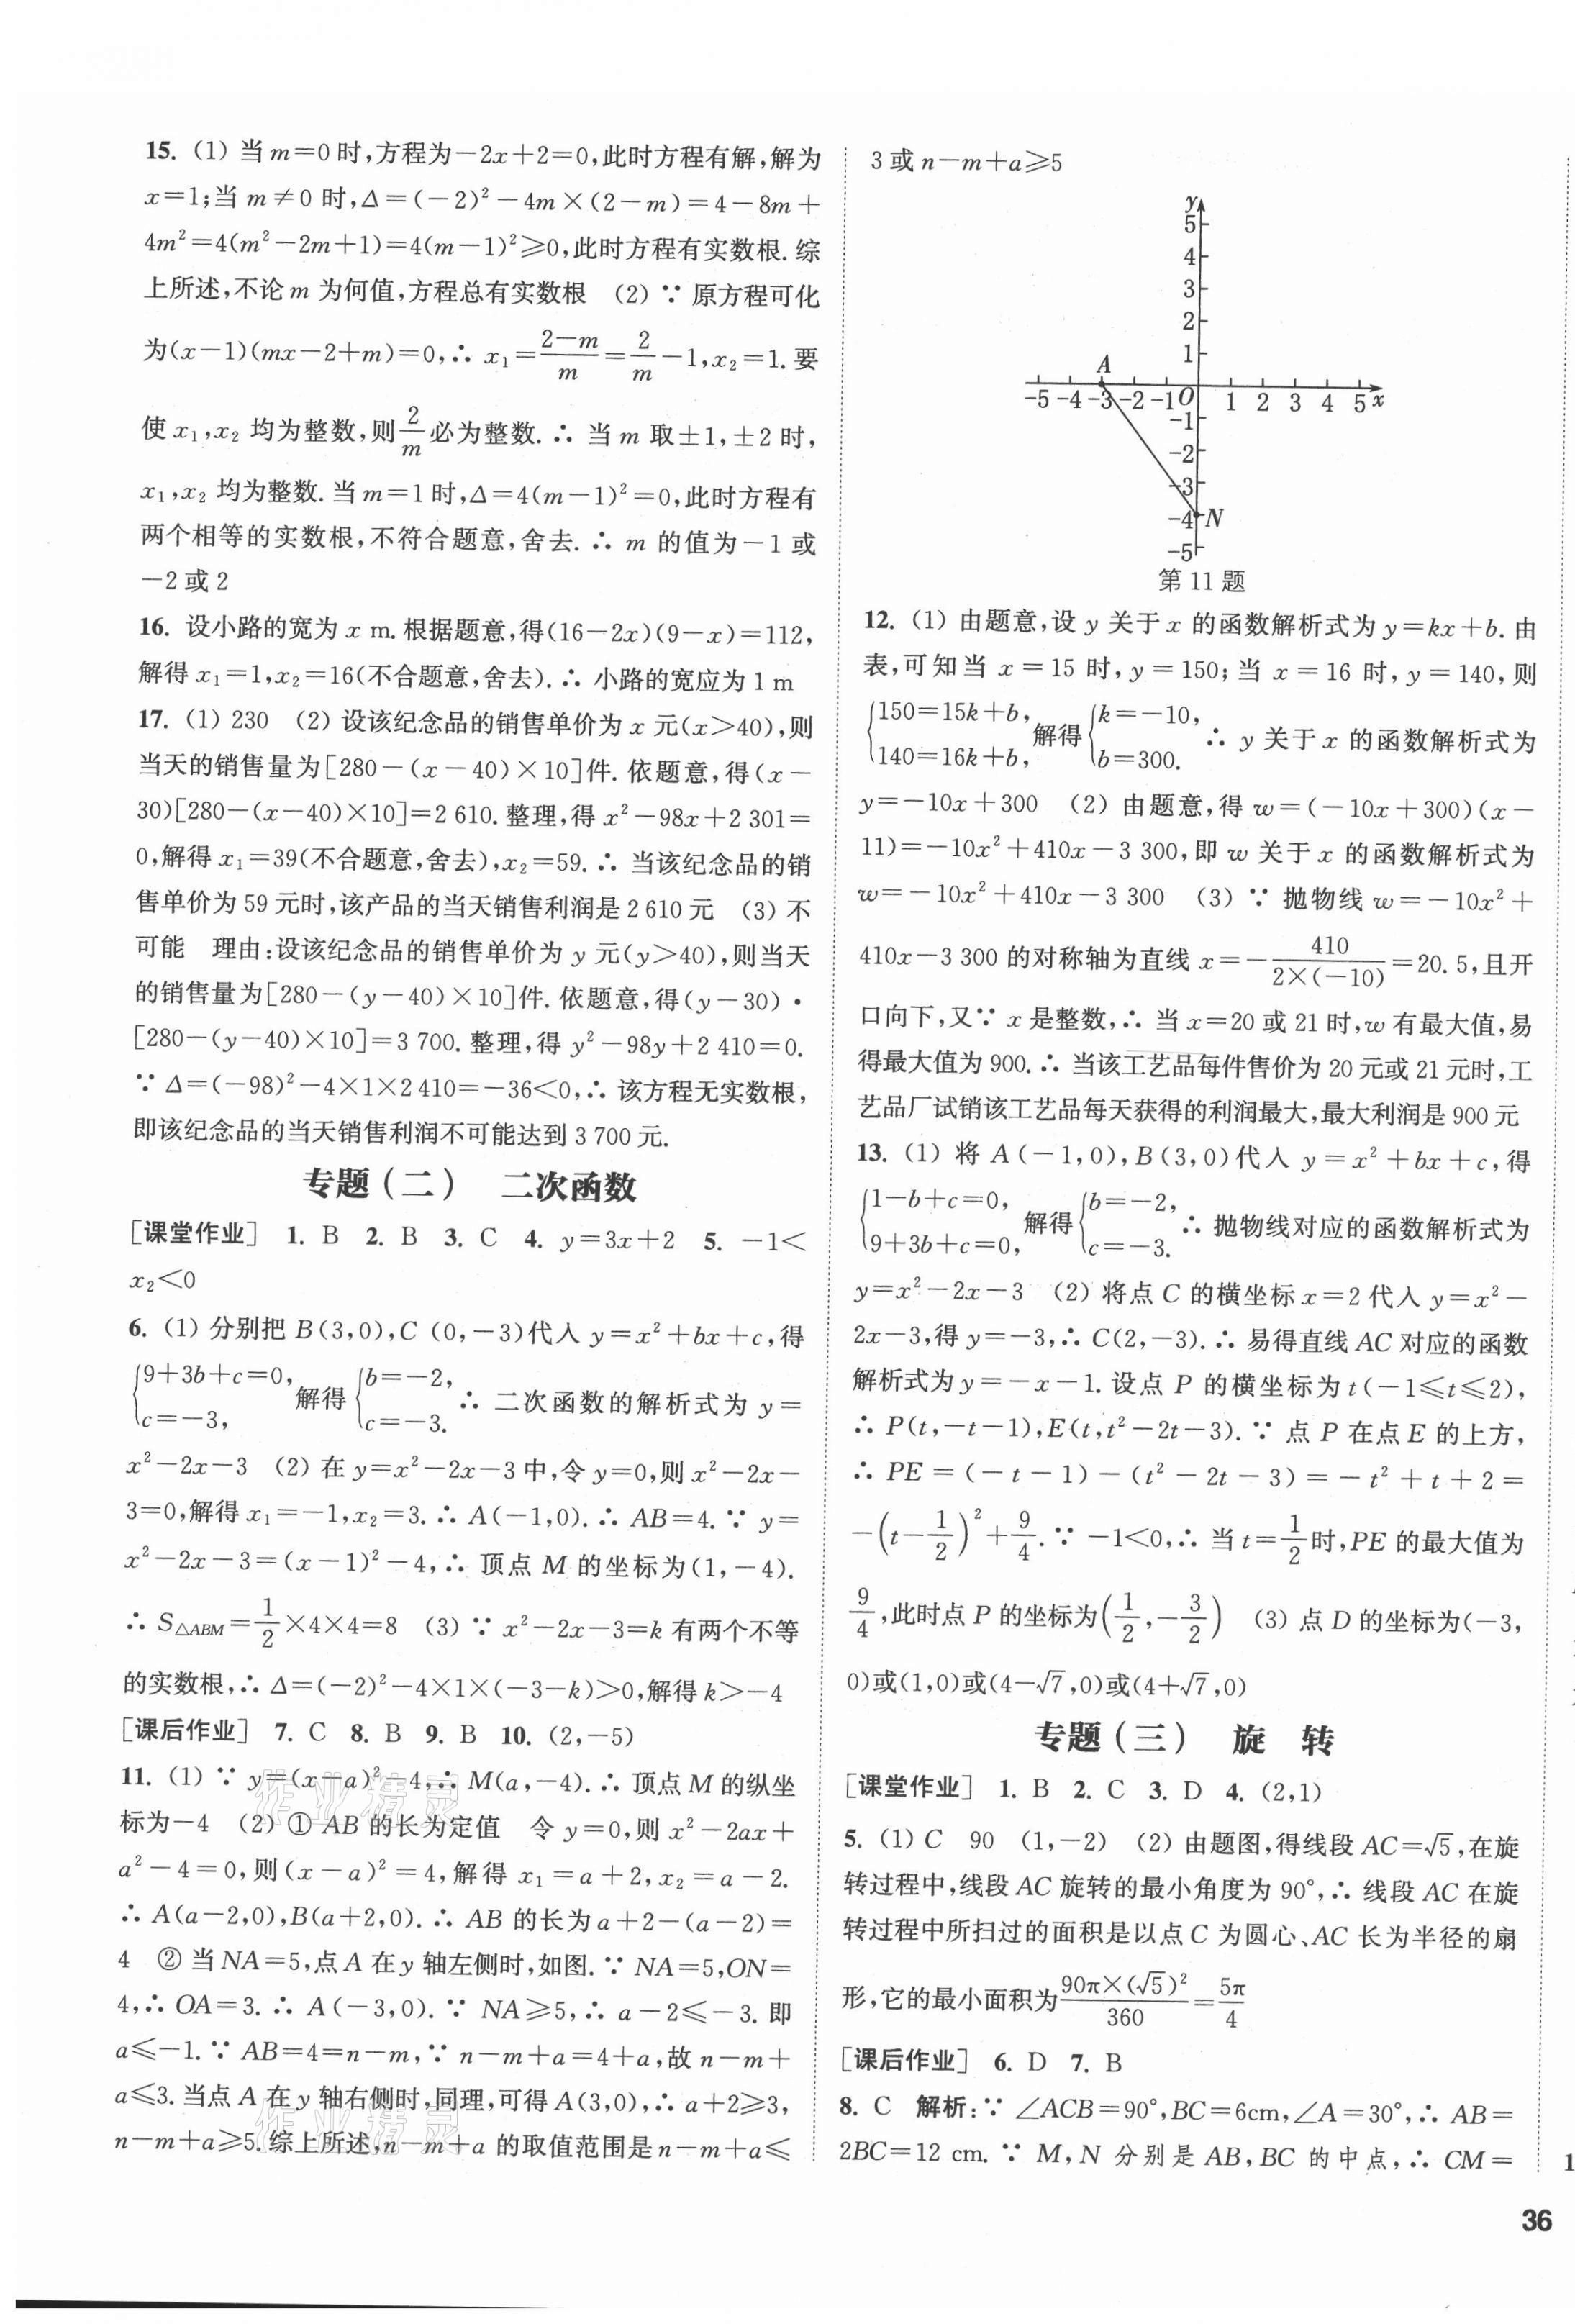 15. (1) 当 m=0 时,方程为-2x+2=0,此时方程有解,解为
x=1;当 m≠0 时,Δ=(-2)²-4m×(2-m)=4-8m+
4m²=4(m²-2m+1)=4(m-1)²≥0,此时方程有实数根. 综
上所述,不论 m 为何值,方程总有实数根 (2) ∵ 原方程可化
为(x-1)(mx-2+m)=0,∴ x₁=(2-m)/m=2/m-1,x₂=1. 要
使 x₁,x₂ 均为整数,则2/m必为整数. ∴ 当 m 取±1,±2 时,
x₁,x₂ 均为整数. 当 m=1 时,Δ=4(m-1)²=0,此时方程有
两个相等的实数根,不符合题意,舍去. ∴ m 的值为-1 或
-2 或 2
16. 设小路的宽为 x m. 根据题意,得(16-2x)(9-x)=112,
解得 x₁=1,x₂=16(不合题意,舍去). ∴ 小路的宽应为 1 m
17. (1) 230 (2) 设该纪念品的销售单价为 x 元(x>40),则
当天的销售量为[280-(x-40)×10]件. 依题意,得(x-
30)[280-(x-40)×10]=2 610. 整理,得 x²-98x+2 301=
0,解得 x₁=39(不合题意,舍去),x₂=59. ∴ 当该纪念品的销
售单价为 59 元时,该产品的当天销售利润是 2 610 元 (3) 不
可能 理由:设该纪念品的销售单价为 y 元(y>40),则当天
的销售量为[280-(y-40)×10]件. 依题意,得(y-30)·
[280-(y-40)×10]=3 700. 整理,得 y²-98y+2 410=0.
∵ Δ=(-98)²-4×1×2 410=-36<0,∴ 该方程无实数根,
即该纪念品的当天销售利润不可能达到 3 700 元.
专题(二) 二次函数
[课堂作业] 1. B 2. B 3. C 4. y=3x+2 5. -1<
x₂<0
6. (1) 分别把 B(3,0),C (0,-3)代入 y=x²+bx+c,得
{9+3b+c=0, c=-3, 解得 {b=-2, c=-3. ∴ 二次函数的解析式为 y=
x²-2x-3 (2) 在 y=x²-2x-3 中,令 y=0,则 x²-2x-
3=0,解得 x₁=-1,x₂=3. ∴ A(-1,0). ∴ AB=4. ∵ y=
x²-2x-3=(x-1)²-4,∴ 顶点 M 的坐标为(1,-4).
∴ S△ABM=1/2×4×4=8 (3) ∵ x²-2x-3=k 有两个不等
的实数根,∴ Δ=(-2)²-4×1×(-3-k)>0,解得 k>-4
[课后作业] 7. C 8. B 9. B 10. (2,-5)
11. (1) ∵ y=(x-a)²-4,∴ M(a,-4). ∴ 顶点 M 的纵坐
标为-4 (2) ① AB 的长为定值 令 y=0,则 x²-2ax+
a²-4=0,则(x-a)²=4,解得 x₁=a+2,x₂=a-2.
∴ A(a-2,0),B(a+2,0). ∴ AB 的长为 a+2-(a-2)=
4 ② 当 NA=5,点 A 在 y 轴左侧时,如图. ∵ NA=5,ON=
4,∴ OA=3. ∴ A(-3,0). ∵ NA≥5,∴ a-2≤-3. 即
a≤-1. ∵ AB=4=n-m,∵ n-m+a=4+a,故 n-m+
a≤3. 当点 A 在 y 轴右侧时,同理,可得 A(3,0),∴ a+2≥3,
n-m+a≥5. 综上所述,n-m+a 的取值范围是 n-m+a≤
3 或 n-m+a≥5
y
5
4
3
2
1
A
-5 -4 -3 -2 -1 O 1 2 3 4 5 x
-1
-2
-3
-4 N
-5
第 11 题
12. (1) 由题意,设 y 关于 x 的函数解析式为 y=kx+b. 由
表,可知当 x=15 时,y=150;当 x=16 时,y=140,则
{150=15k+b, 140=16k+b, 解得 {k=-10, b=300. ∴ y 关于 x 的函数解析式为
y=-10x+300 (2) 由题意,得 w=(-10x+300)(x-
11)=-10x²+410x-3 300,即 w 关于 x 的函数解析式为
w=-10x²+410x-3 300 (3) ∵ 抛物线 w=-10x²+
410x-3 300 的对称轴为直线 x=-410/(2×(-10))=20. 5,且开
口向下,又∵ x 是整数,∴ 当 x=20 或 21 时,w 有最大值,易
得最大值为 900. ∴ 当该工艺品每件售价为 20 元或 21 元时,工
艺品厂试销该工艺品每天获得的利润最大,最大利润是 900 元
13. (1) 将 A(-1,0),B(3,0)代入 y=x²+bx+c,得
{1-b+c=0, 9+3b+c=0, 解得 {b=-2, c=-3. ∴ 抛物线对应的函数解析式为
y=x²-2x-3 (2) 将点 C 的横坐标 x=2 代入 y=x²-
2x-3,得 y=-3,∴ C(2,-3). ∴ 易得直线 AC 对应的函数
解析式为 y=-x-1. 设点 P 的横坐标为 t(-1≤t≤2),
∴ P(t,-t-1),E(t,t²-2t-3). ∵ 点 P 在点 E 的上方,
∴ PE=(-t-1)-(t²-2t-3)=-t²+t+2=
-(t-1/2)²+9/4. ∵ -1<0,∴ 当 t=1/2时,PE 的最大值为
9/4,此时点 P 的坐标为(1/2,-3/2) (3) 点 D 的坐标为(-3,
0)或(1,0)或(4-√7,0)或(4+√7,0)
专题(三) 旋 转
[课堂作业] 1. B 2. C 3. D 4. (2,1)
5. (1) C 90 (1,-2) (2) 由题图,得线段 AC=√5,在旋
转过程中,线段 AC 旋转的最小角度为 90°,∴ 线段 AC 在旋
转过程中所扫过的面积是以点 C 为圆心、AC 长为半径的扇
形,它的最小面积为90π×(√5)²/360=5π/4
[课后作业] 6. D 7. B
8. C 解析:∵ ∠ACB=90°,BC=6cm,∠A=30°,∴ AB=
2BC=12 cm. ∵ M,N 分别是 AB,BC 的中点,∴ CM=
36
作业精灵
作业精灵